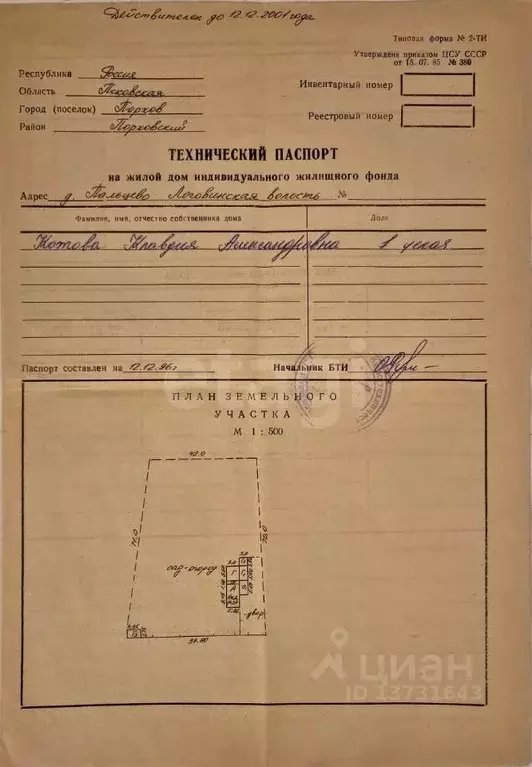 Действителен до 12.12.2001 года
Типовая форма № 2-ТИ
Утверждена приказом ЦСУ СССР
от 15.07.85 № 380
Республика Россия
Область Псковская
Город (поселок) Порхов
Район Порховский
Инвентарный номер
Реестровый номер
ТЕХНИЧЕСКИЙ ПАСПОРТ
на жилой дом индивидуального жилищного фонда
Адрес д. Пальцево Логовинская волость №
Фамилия, имя, отчество собственника дома
Доля
Котова Клавдия Александровна 1 целая
Паспорт составлен на 12.12.96г
Начальник БТИ
etagi
ПЛАН ЗЕМЕЛЬНОГО
УЧАСТКА
М 1 : 500
42.0
сад-огород
двор
циан
ID 13731643